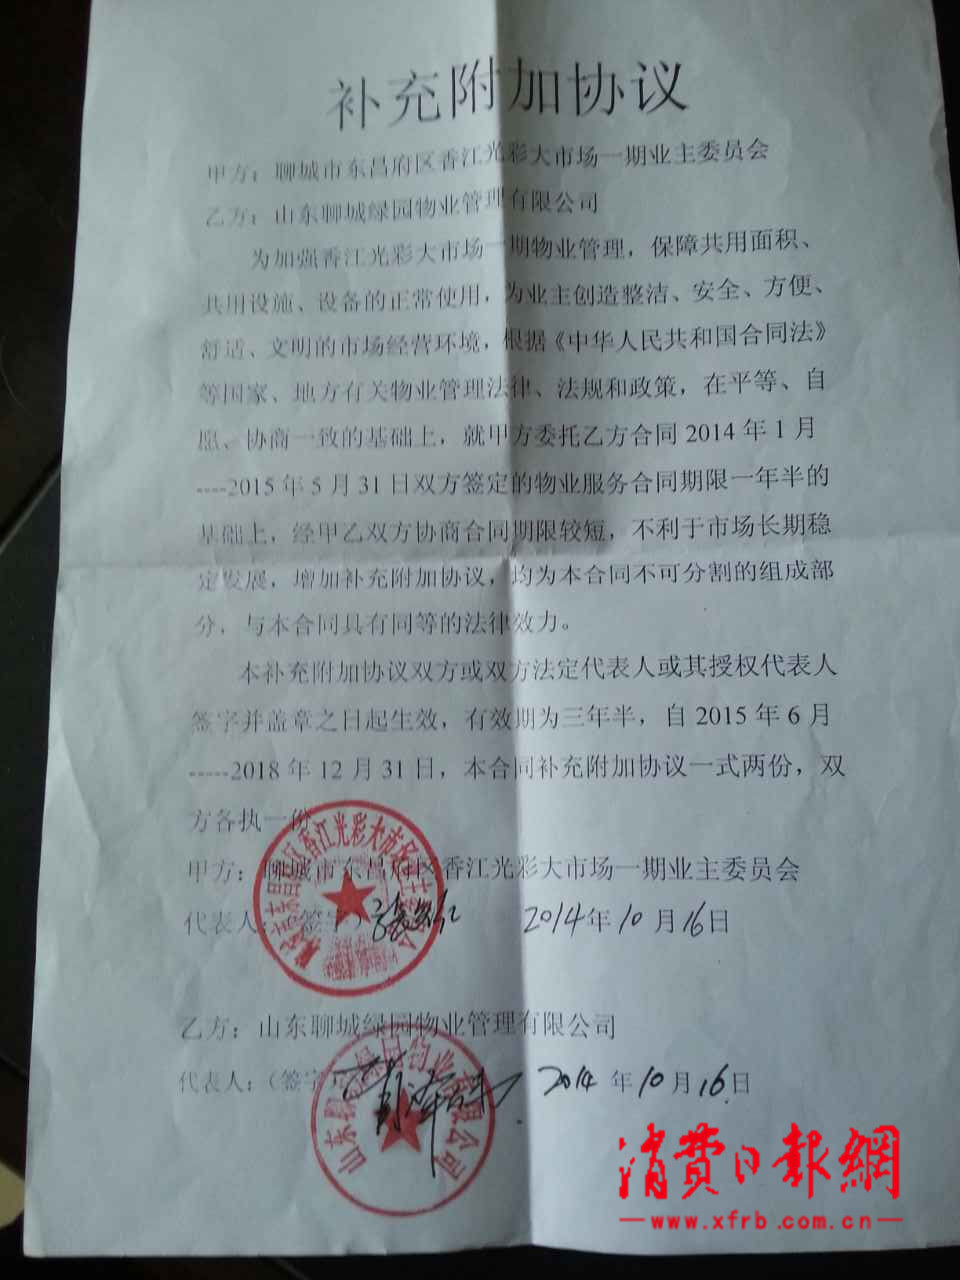 补充附加协议
甲方：聊城市东昌府区香江光彩大市场一期业主委员会
乙方：山东聊城绿园物业管理有限公司
为加强香江光彩大市场一期物业管理，保障共用面积、
共用设施、设备的正常使用，为业主创造整洁、安全、方便、
舒适、文明的市场经营环境，根据《中华人民共和国合同法》
等国家、地方有关物业管理法律、法规和政策，在平等、自
愿、协商一致的基础上，就甲方委托乙方合同 2014 年 1 月
----2015 年 5 月 31 日双方签定的物业服务合同期限一年半的
基础上，经甲乙双方协商合同期限较短，不利于市场长期稳
定发展，增加补充附加协议，均为本合同不可分割的组成部
分，与本合同具有同等的法律效力。
本补充附加协议双方或双方法定代表人或其授权代表人
签字并盖章之日起生效，有效期为三年半，自 2015 年 6 月
-----2018 年 12 月 31 日，本合同补充附加协议一式两份，双
方各执一份
甲方：聊城市东昌府区香江光彩大市场一期业主委员会
代表人：（签字）
2014年10月16日
乙方：山东聊城绿园物业管理有限公司
代表人：（签字
2014 年10月16日
消费日報網
www.xfrb.com.cn